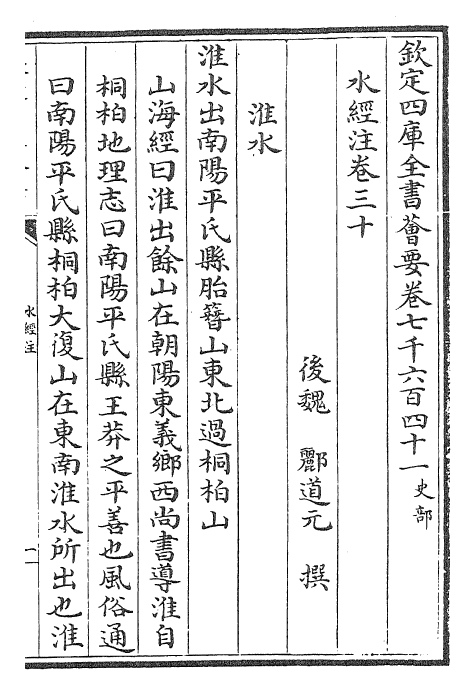 欽定四庫全書薈要卷七千六百四十一 史部
水經注卷三十
後魏 酈道元 撰
淮水
淮水出南陽平氏縣胎簪山東北過桐柏山
山海經曰淮出餘山在朝陽東義鄉西尚書導淮自
桐柏地理志曰南陽平氏縣王莽之平善也風俗通
曰南陽平氏縣桐柏大復山在東南淮水所出也淮
水經注
一